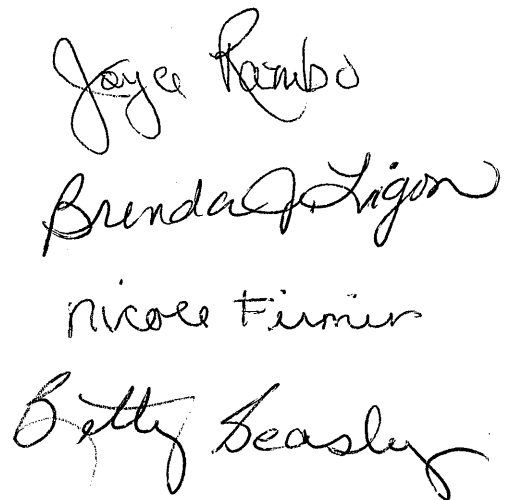 Joyce Rambo
Brenda J Ligon
Nicole
Betty Beasley